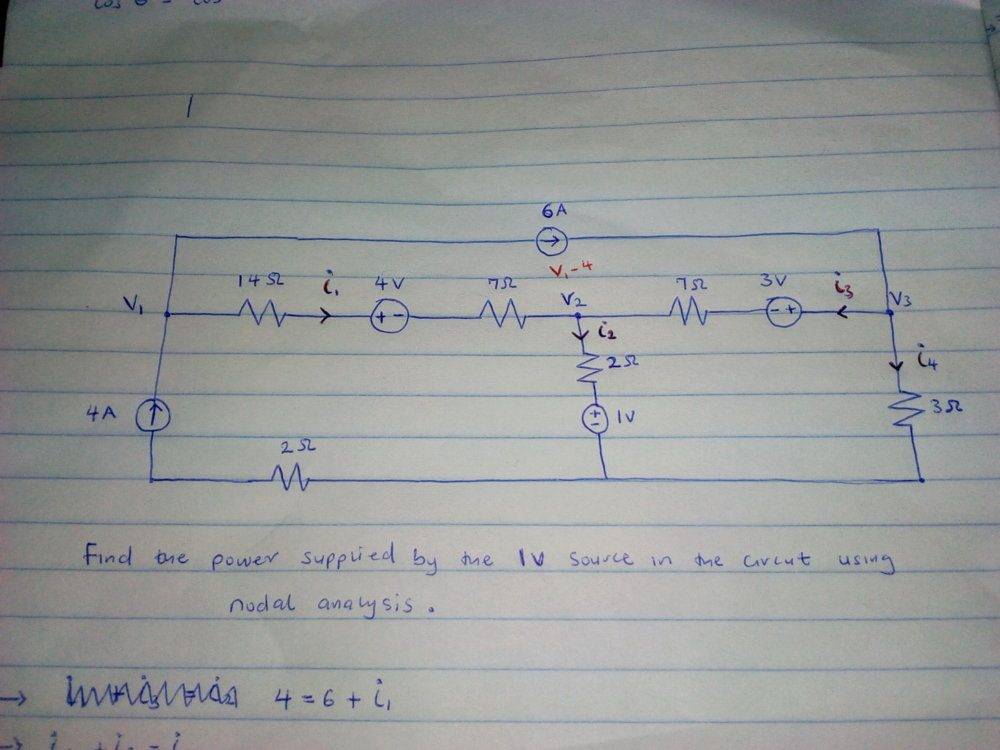 cos θ = cos
6A
V₁-4
14Ω i₁ 4V 7Ω V₂ 7Ω 3V i₃
V₁ + - - + V₃
i₂
2Ω i₄
4A + - 1V 3Ω
2Ω
Find the power supplied by the 1V source in the circut using
nodal analysis.
→ 4 = 6 + i₁
→